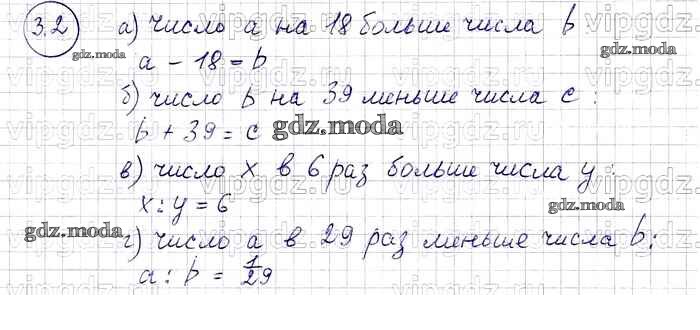 3.2 а) число a на 18 больше числа b
a - 18 = b
б) число b на 39 меньше числа c:
b + 39 = c
в) число x в 6 раз больше числа y:
x : y = 6
г) число a в 29 раз меньше числа b:
a : b = 1/29
gdz.moda
gdz.moda
gdz.moda
gdz.moda
vipgdz.ru